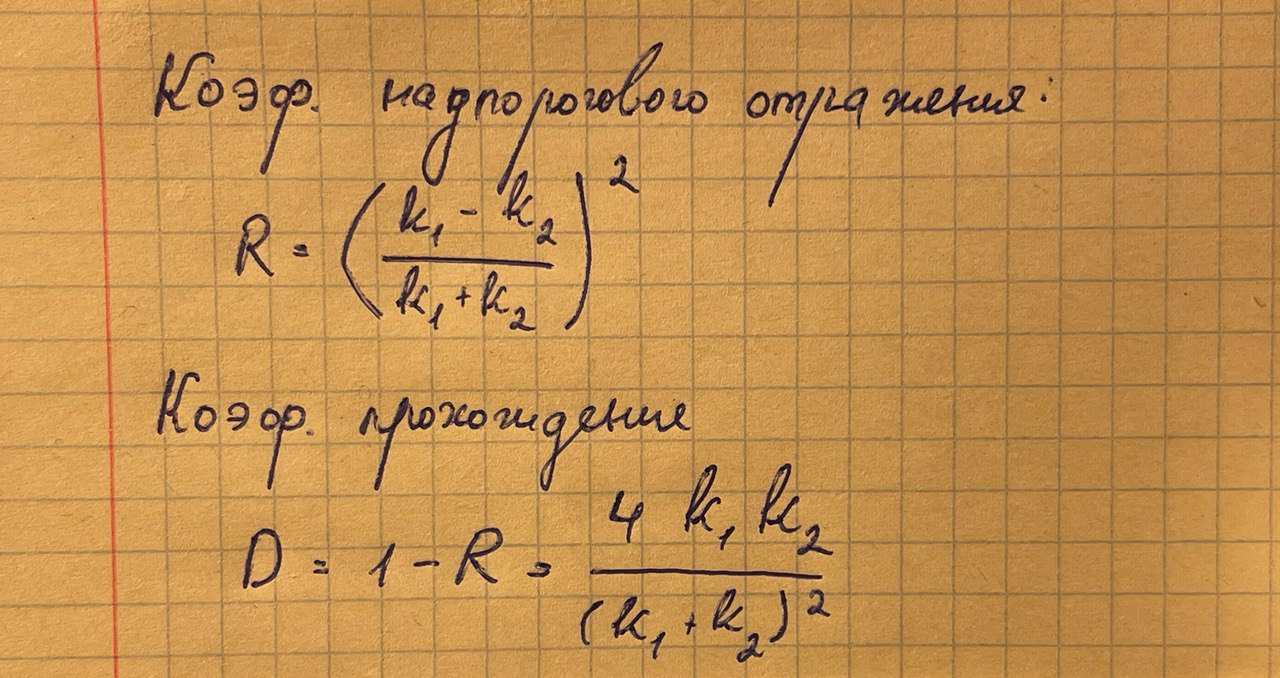 Коэф. надпорогового отражения:
R = ( (k₁ - k₂) / (k₁ + k₂) )²
Коэф. прохождение
D = 1 - R = 4 k₁ k₂ / (k₁ + k₂)²